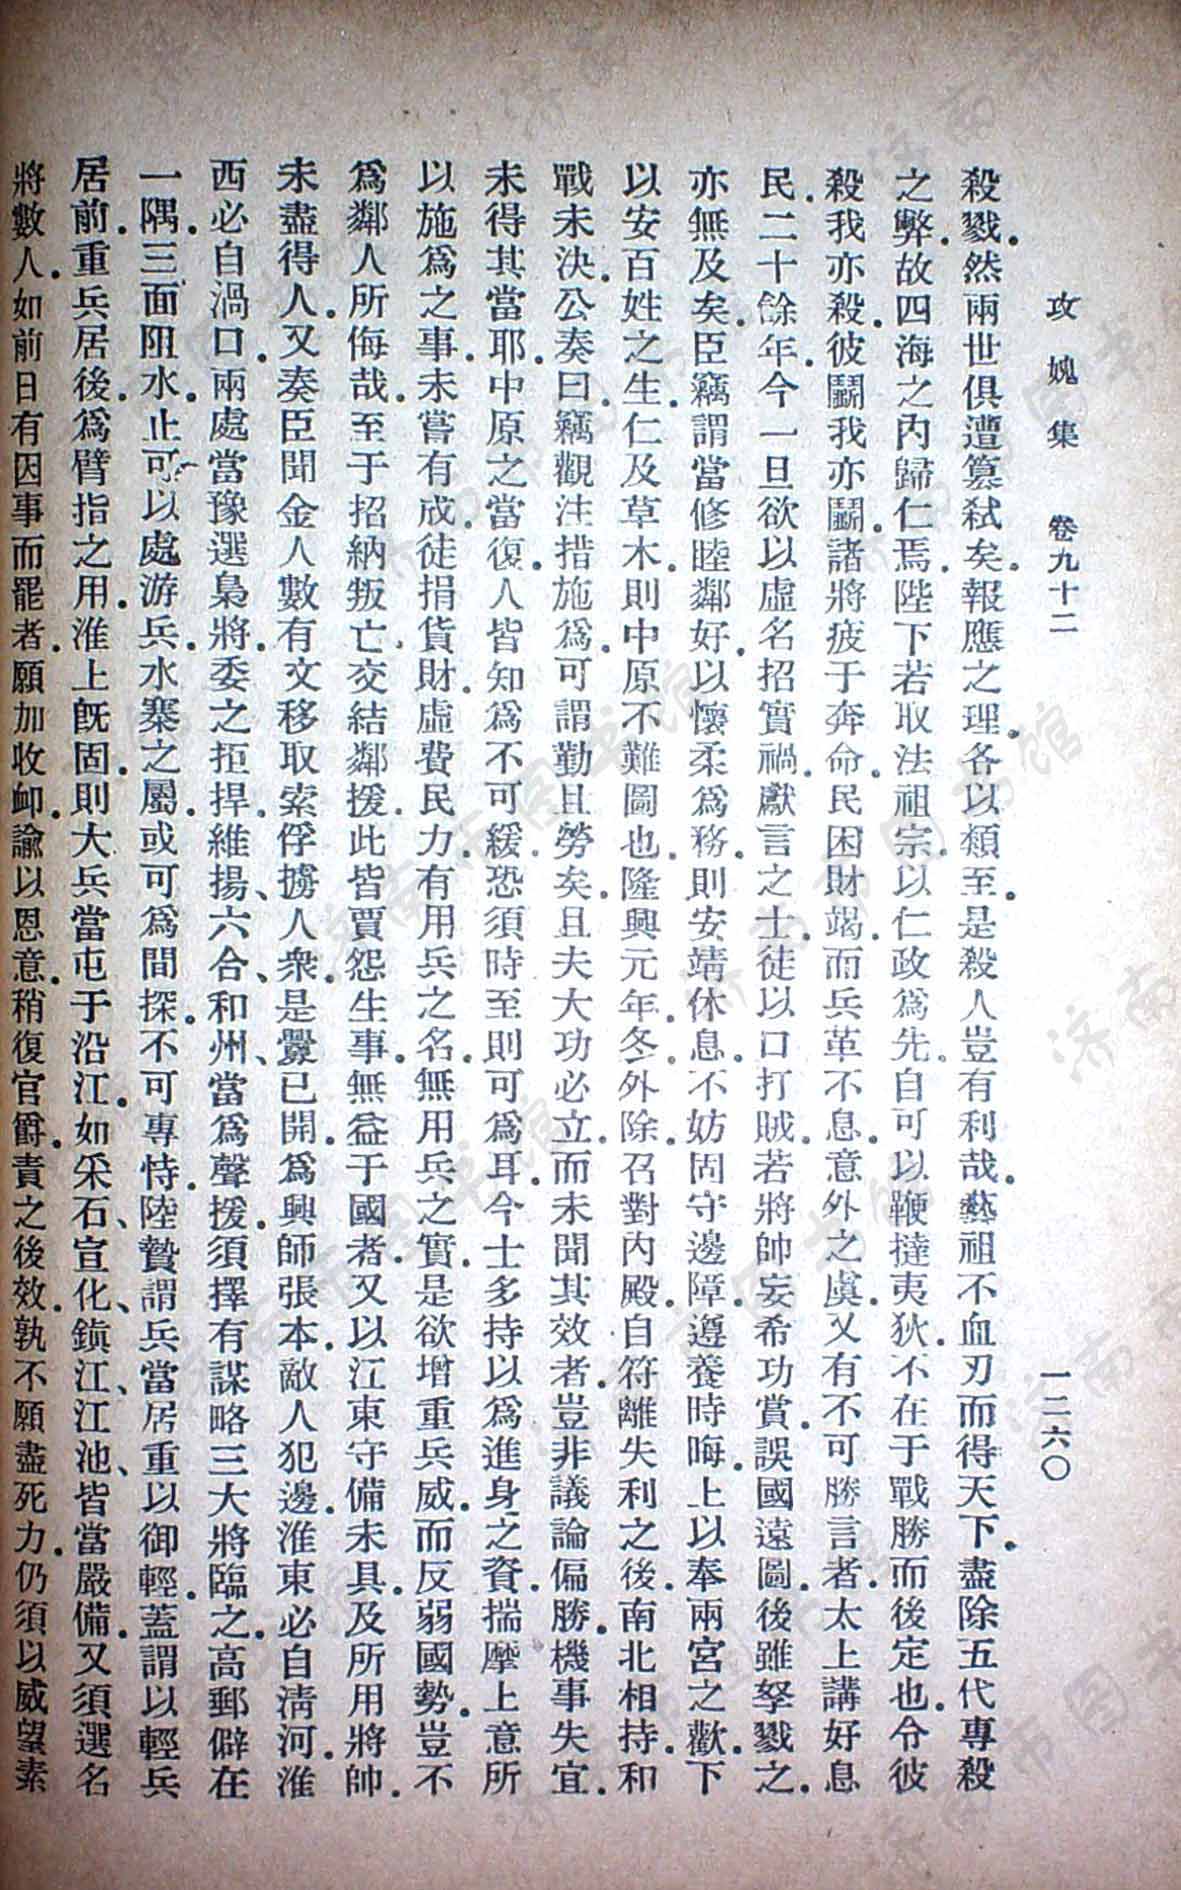 攻媿集　卷九十二　一二六〇
殺戮。然兩世俱遭篡弑矣。報應之理。各以類至。是殺人豈有利哉。藝祖不血刃而得天下。盡除五代專殺
之弊。故四海之內歸仁焉。陛下若取法祖宗。以仁政爲先。自可以鞭撻夷狄。不在于戰勝而後定也。令彼
殺我亦殺。彼鬭我亦鬭。諸將疲于奔命。民困財竭。而兵革不息。意外之虞。又有不可勝言者。太上講好息
民。二十餘年。今一旦欲以虛名招實禍。獻言之士。徒以口打賊。若將帥妄希功賞。誤國遠圖。後雖孥戮之。
亦無及矣。臣竊謂當修睦鄰好。以懷柔爲務。則安靖休息。不妨固守邊障。遵養時晦。上以奉兩宮之歡。下
以安百姓之生。仁及草木。則中原不難圖也。隆興元年。冬。外除。召對內殿。自符離失利之後。南北相持。和
戰未決。公奏曰。竊觀注措施爲。可謂勤且勞矣。且夫大功必立。而未聞其效者。豈非議論偏勝。機事失宜。
未得其當耶。中原之當復。人皆知爲不可緩。恐須時至則可爲耳。今士多持以爲進身之資。揣摩上意所
以施爲之事。未嘗有成。徒捐貨財。虛費民力。有用兵之名。無用兵之實。是欲增重兵威。而反弱國勢。豈不
爲鄰人所侮哉。至于招納叛亡。交結鄰援。此皆賈怨生事。無益于國者。又以江東守備未具。及所用將帥。
未盡得人。又奏臣聞金人數有文移取索俘擄人衆。是釁已開。爲興師張本。敵人犯邊。淮東必自清河。淮
西必自渦口。兩處當豫選梟將。委之拒捍。維揚、六合、和州、當爲聲援。須擇有謀略三大將臨之。高郵僻在
一隅。三面阻水。止可以處游兵。水寨之屬。或可爲間探。不可專恃。陸贄謂兵當居重以御輕。蓋謂以輕兵
居前。重兵居後。爲臂指之用。淮上旣固。則大兵當屯于沿江。如采石、宣化、鎭江、江池、皆當嚴備。又須選名
將數人。如前日有因事而罷者。願加收卹。諭以恩意。稍復官爵。責之後效。孰不願盡死力。仍須以威望素